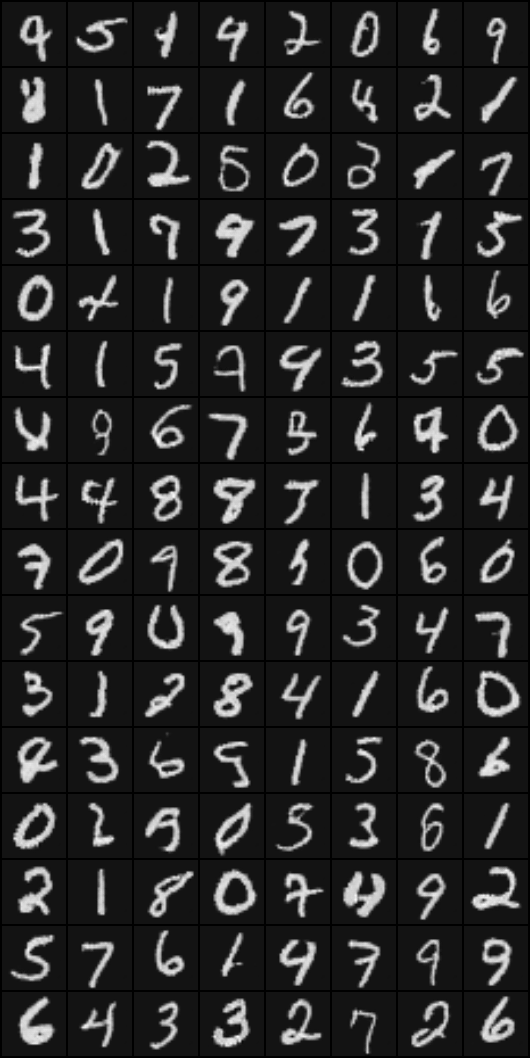 9 5 1 9 2 0 6 9
8 1 7 1 6 4 2 1
1 0 2 5 0 3 1 7
3 1 7 9 7 3 1 5
0 4 1 9 1 1 6 6
4 1 5 9 9 3 5 5
8 6 7 5 6 9 0
4 4 8 8 7 1 3 4
7 0 9 8 1 0 6 0
5 9 0 9 9 3 4 7
3 1 2 8 4 1 6 0
8 3 6 5 1 5 8 6
0 2 9 0 5 3 6 1
2 1 8 0 7 4 9 2
5 7 6 1 4 7 9 9
6 4 3 3 2 7 2 6